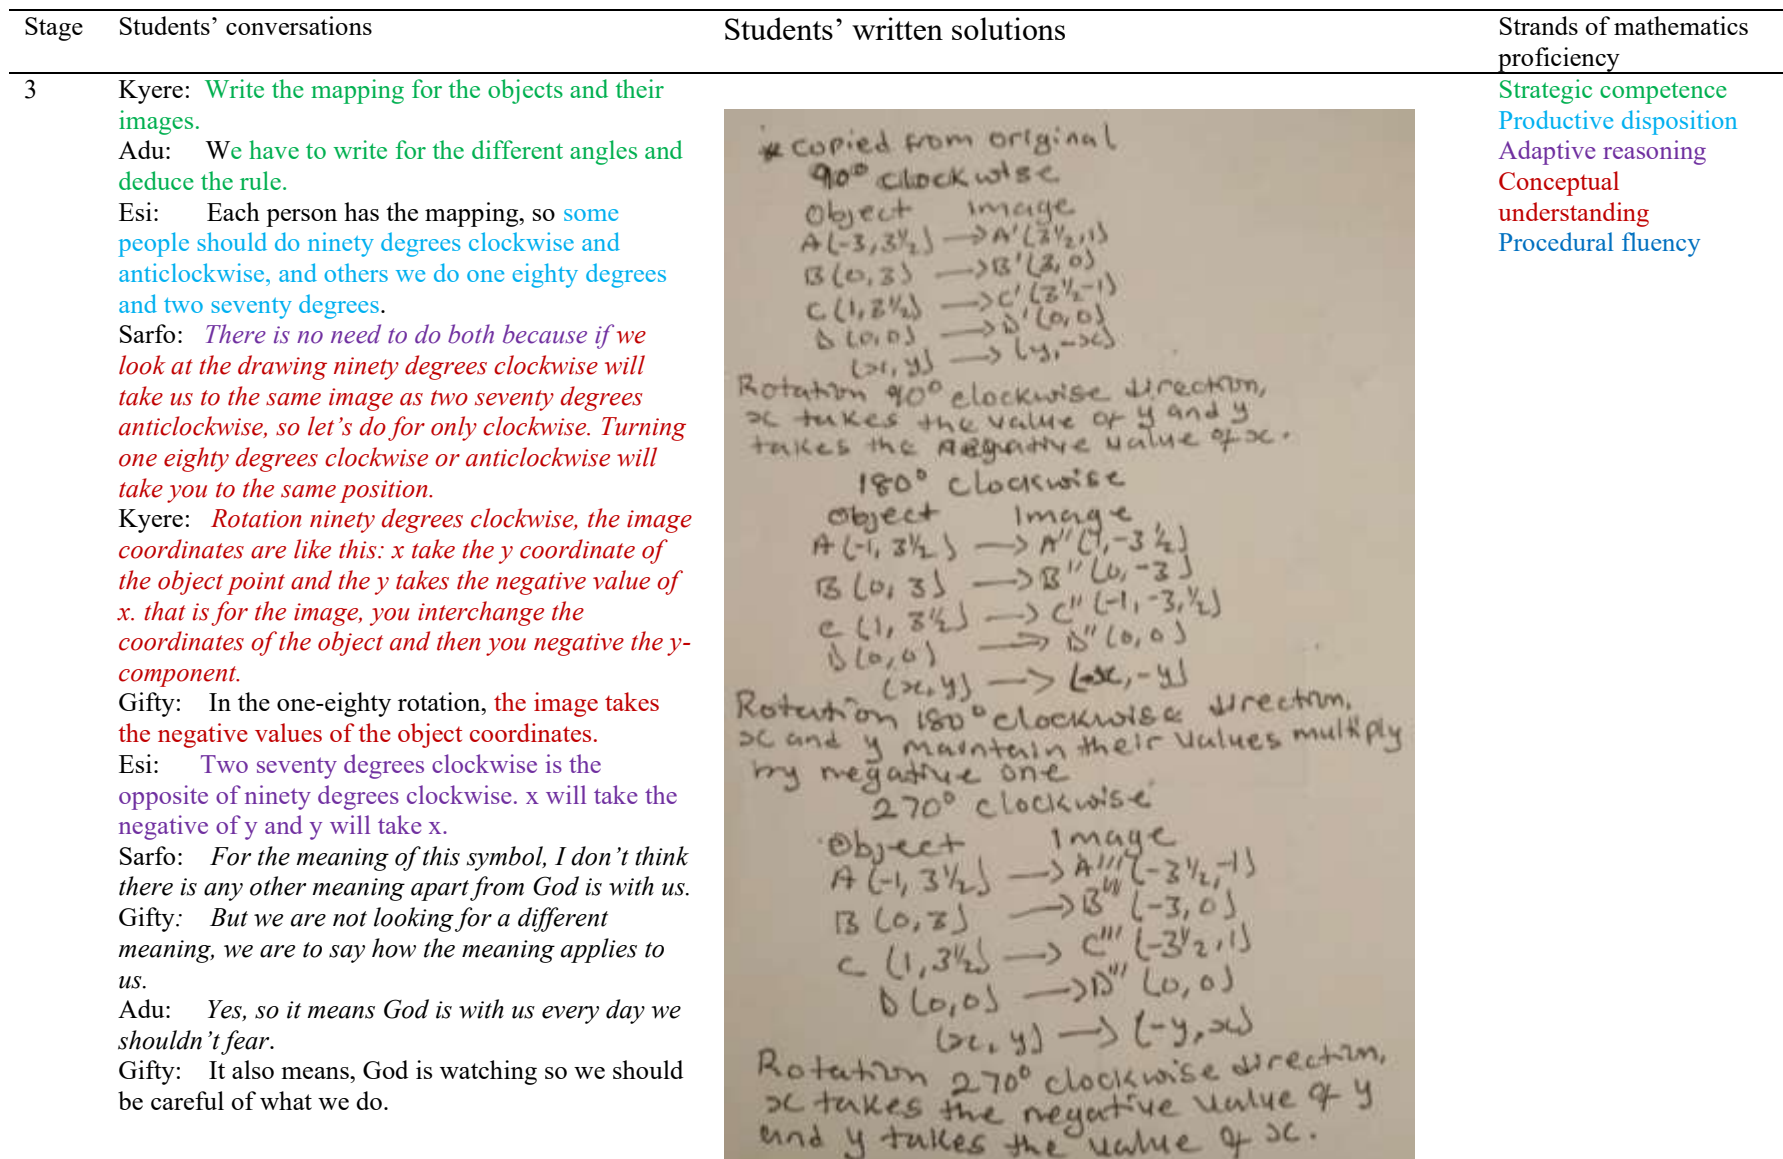 Stage Students’ conversations Students’ written solutions Strands of mathematics
proficiency
3 Kyere: Write the mapping for the objects and their
images.
Adu: We have to write for the different angles and
deduce the rule.
Esi: Each person has the mapping, so some
people should do ninety degrees clockwise and
anticlockwise, and others we do one eighty degrees
and two seventy degrees.
Sarfo: There is no need to do both because if we
look at the drawing ninety degrees clockwise will
take us to the same image as two seventy degrees
anticlockwise, so let’s do for only clockwise. Turning
one eighty degrees clockwise or anticlockwise will
take you to the same position.
Kyere: Rotation ninety degrees clockwise, the image
coordinates are like this: x take the y coordinate of
the object point and the y takes the negative value of
x. that is for the image, you interchange the
coordinates of the object and then you negative the y-
component.
Gifty: In the one-eighty rotation, the image takes
the negative values of the object coordinates.
Esi: Two seventy degrees clockwise is the
opposite of ninety degrees clockwise. x will take the
negative of y and y will take x.
Sarfo: For the meaning of this symbol, I don’t think
there is any other meaning apart from God is with us.
Gifty: But we are not looking for a different
meaning, we are to say how the meaning applies to
us.
Adu: Yes, so it means God is with us every day we
shouldn’t fear.
Gifty: It also means, God is watching so we should
be careful of what we do.
* copied from original
90° clockwise
Object Image
A(-3, 3½) → A'(3½, 1)
B(0, 3) → B'(3, 0)
C(1, 3½) → C'(3½-1)
D(0,0) → D'(0,0)
(x, y) → (y, -x)
Rotation 90° clockwise direction,
x takes the value of y and y
takes the negative value of x.
180° clockwise
Object Image
A(-1, 3½) → A''(1, -3½)
B(0, 3) → B''(0, -3)
C(1, 3½) → C''(-1, -3,½)
D(0,0) → D''(0,0)
(x, y) → (-x, -y)
Rotation 180° clockwise direction,
x and y maintain their values multiply
by negative one
270° clockwise
Object Image
A(-1, 3½) → A'''(-3½, -1)
B(0, 3) → B'''(-3, 0)
C(1, 3½) → C'''(-3½, 1)
D(0,0) → D'''(0,0)
(x, y) → (-y, x)
Rotation 270° clockwise direction,
x takes the negative value of y
and y takes the value of x.
Strategic competence
Productive disposition
Adaptive reasoning
Conceptual
understanding
Procedural fluency